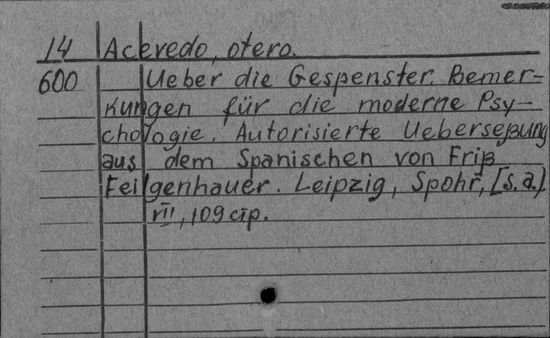 14 Acevedo, otero.
600 Ueber die Gespenster. Bemer-
kungen für die moderne Psy-
chologie. Autorisierte Uebersetzung
aus dem Spanischen von Fritz
Feilgenhauer. Leipzig, Spohr, [s.a.]
VIII, 109 стр.